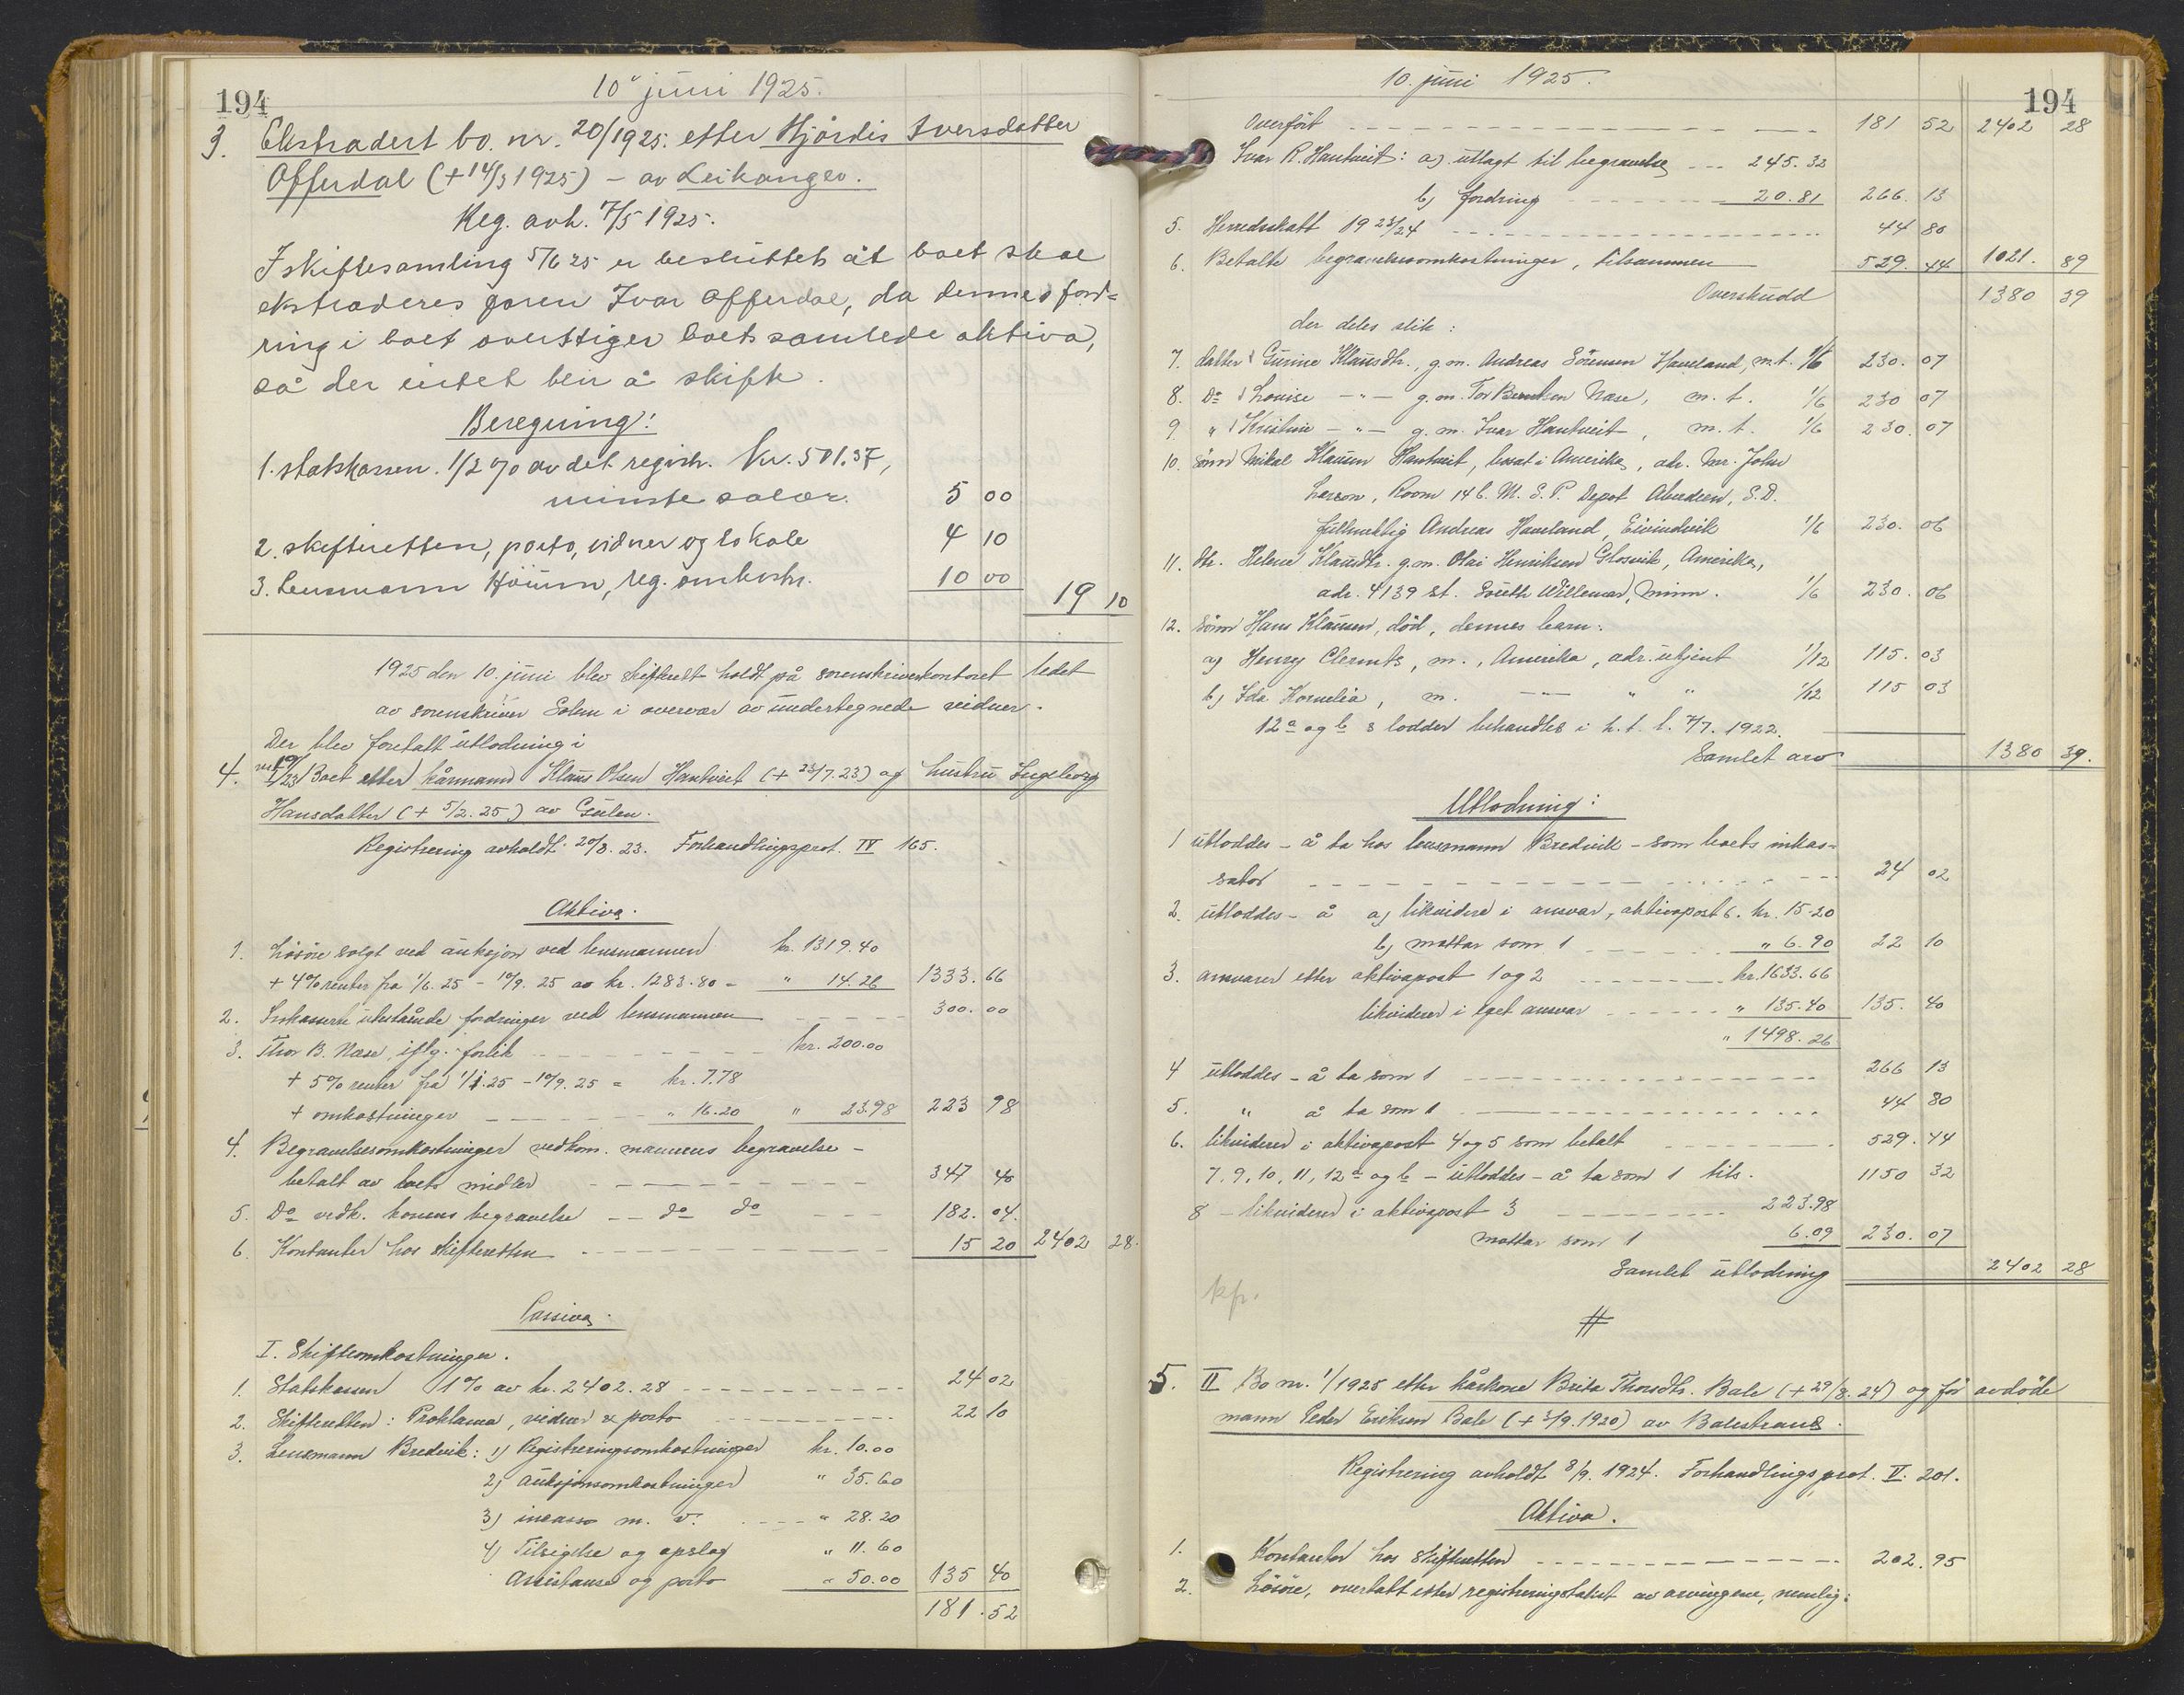 194
10 juni 1925.
3. Ekstradert bo. nr. 20/1925. etter Hjørdis Iversdatter
Offerdal (+ 14/3 1925) - av Leikanger.
Reg. avh. 7/5 1925.
I skiftesamling 5/6 25 er besluttet at boet skal
ekstraderes faren Ivar Offerdal, da dennes ford=
ring i boet overstiger boets samlede aktiva,
så der intet blir å skifte.
Beregning:
1. statskassen. 1/2 % av det registr. kr. 501.37,
minste salær. 5 00
2. skifteretten, porto, vidner og lokale 4 10
3. Lensmann Höium, reg. omkostn. 10 00 19 10
1925 den 10. juni blev skifterett holdt på sorenskriverkontoret ledet
av sorenskriver Solem i overvær av undertegnede vidner.
Der blev foretatt utlodning i
4. nr 19/23 Boet etter kårmand Klaus Olsen Hantveit (+ 23/7.23) og hustru Ingeborg
Hansdatter (+ 5/2.25) av Gulen.
Registrering avholdt 20/8.23. Forhandlingsprot. IV 165.
Aktiva.
1. Lösöre solgt ved auksjon ved lensmannen kr. 1319.40
+ 4% renter fra 1/6.25 - 10/9.25 av kr. 1283.80 = " 14.26 1333.66
2. Inkasserte utestående fordringer ved lensmannen 300.00
3. Thor B. Næse, iflg. forlik kr. 200.00
+ 5% renter fra 1/1.25 - 10/9.25 = kr. 7.78
+ omkostninger " 16.20 " 23.98 223 98
4. Begravelsesomkostninger vedkom. mannens begravelse -
betalt av boets midler 347 40
5. Do vedk. konens begravelse -- do do 182.04.
6. Kontanter hos skifteretten 15 20 2402 28.
Passiva.
I. Skifteomkostninger.
1. Statskassen 1% av kr. 2402.28 24 02
2. Skifteretten: Proklama, vidner & porto 22 10
3. Lensmann Bredvik: 1) Registreringsomkostninger kr. 10.00
2) auksjonsomkostninger " 35.60
3) incasso m. v. " 28.20
4) Tilsigelse og opslag " 11.60
Assistanse og porto " 50.00 135 40
181.52
10. juni 1925.
194
Overført 181 52 2402 28
Ivar R. Hantveit: a) utlagt til begravelse 245.32
b) fordring 20.81 266.13
5. Herredsskatt 1923/24 44 80
6. Betalte begravelsesomkostninger, tilsammen 529.44 1021.89
Overskudd 1380 39
der deles slik:
7. datter Gurine Klausdtr., g.m. Andreas Sörensen Haveland, m.t. 1/6 230.07
8. Do Louise -"- g.m. Tor Berntsen Næse, m.t. 1/6 230 07
9. " Kristine -"- g.m. Ivar Hantveit, m.t. 1/6 230.07
10. sönn Mikal Klausen Hantveit, bosat i Amerika, adr. Mr. John
Larson, Room 14 b. M. S. P. Depot Aberdeen, S.D.
fullmektig Andreas Haveland, Eivindvik 1/6 230.06
11. dtr. Helene Klausdtr. g.m. Olai Henriksen Glosvik, Amerika,
adr. 4139 st. South Willemar, Minn. 1/6 230.06
12. sönn Hans Klausen, död, dennes barn:
a) Henry Clemets, m., Amerika, adr. ukjent 1/12 115.03
b) Ida Kornelia, m. -"- " " 1/12 115 03
12a og b s lodder behandles i h. t. l. 7/7. 1922.
Samlet arv 1380 39.
Utlodning:
1 utloddes - å ta hos lensmann Bredvik - som boets inkas-
sator 24 02
2. utloddes - å a) likvidere i ansvar, aktivapost 6. kr. 15.20
b) mottar som 1 " 6.90 22 10
3. ansvarer etter aktivapost 1 og 2 kr. 1633.66
likviderer i eget ansvar " 135.40 135.40
" 1498.26
4 utloddes - å ta som 1 266 13
5. " å ta som 1 44 80
6. likviderer i aktivapost 4 og 5 som betalt 529.44
7, 9, 10, 11, 12a og b - utloddes - å ta som 1 tils. 1150 32
8 - likviderer i aktivapost 3 223.98
mottar som 1 6.09 230.07
Samlet utlodning 2402 28
kfr.
#
5. II Bo nr. 1/1925 etter kårkone Brita Thorsdtr. Bale (+ 29/8.24) og för avdöde
mann Peder Eriksen Bale (+ 3/9.1920) av Balestrand.
Registrering avholdt 8/9. 1924. Forhandlingsprot. V. 201.
Aktiva.
1. Kontanter hos skifteretten 202.95
2. Lösöre, overtatt etter registreringstakst av arvingene, nemlig: